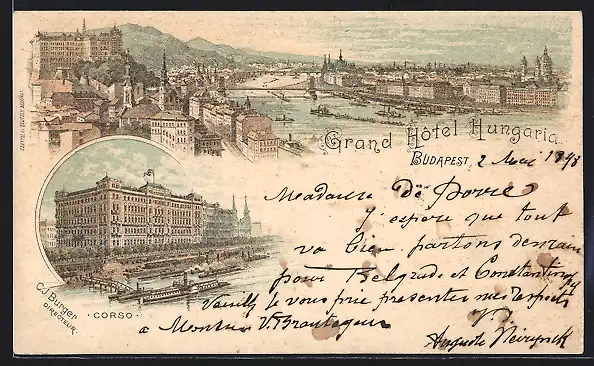 Grand Hôtel Hungaria
BUDAPEST, 2 Mai 1898
Madame
J'espère que tout
va bien. partons demain
pour Belgrade et Constantinople
Veuillez je vous prie presenter mes respects
à Monsieur V.
Auguste
C.J. Burger
DIRECTEUR.
· CORSO ·